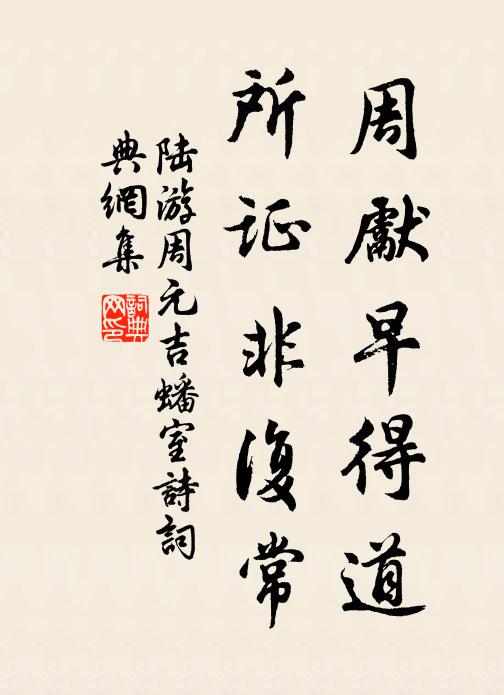 周獻早得道
所证非復常
陆游周元吉蟠室詩詞
典網集
詞典网印